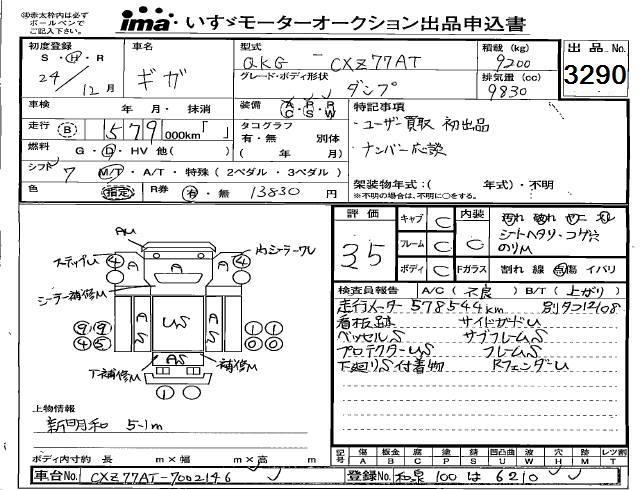 ㊟赤太枠内は必ず ボールペンで ご記入下さい。
ima いすゞモーターオークション出品申込書
初度登録 S・H・R 24/12月
車名 ギガ
型式 QKG-CXZ77AT
グレード・ボディ形状 ダンプ
積載 (kg) 9200
排気量 (cc) 9830
出品No. 3290
車検 年・月・抹消
装備 A/C P/S R/W
走行 B 579 000km「 」
タコグラフ 有・無 別体 ( 年 月)
燃料 G・D・HV 他( )
シフト 7 M/T・A/T・特殊 (2ペダル・3ペダル)
色 指定 R券 有・無 13830 円
特記事項
・ユーザー買取 初出品
・ナンバー応談
架装物年式:( 年式)・不明
※不明の場合は、不明に○をする。
評価 3.5
キャブ C
フレーム C
ボディ C
内装 C
Fガラス
汚れ 破れ
シートヘタリ・コゲ穴
のりM
割れ 線 点傷 イバリ
AM
ステップM 4 A A A 4
シーラー補修M
A S US A S
9 9 4 5 1 1 0 0
AS
下補修M 補修M
1
検査員報告 A/C( 不良 ) B/T( 上がり )
走行メーター 578544km 別タコ12108
看板跡 サイドガードU
ベッセルS サブフレームS
プロテクターUS フレームS
下廻りS付着物 RフェンダーU
上物情報
新明和 5-1m
ボディ内寸約 長 m × 幅 m × 高 m
記号 傷 A 板金 B 腐 C 塗 P 錆 S 凹凸曲 U 波 W 穴 H 跡 M リツ替 T
車台No. CXZ77AT-7002146
登録No. 和泉 100 は 6210